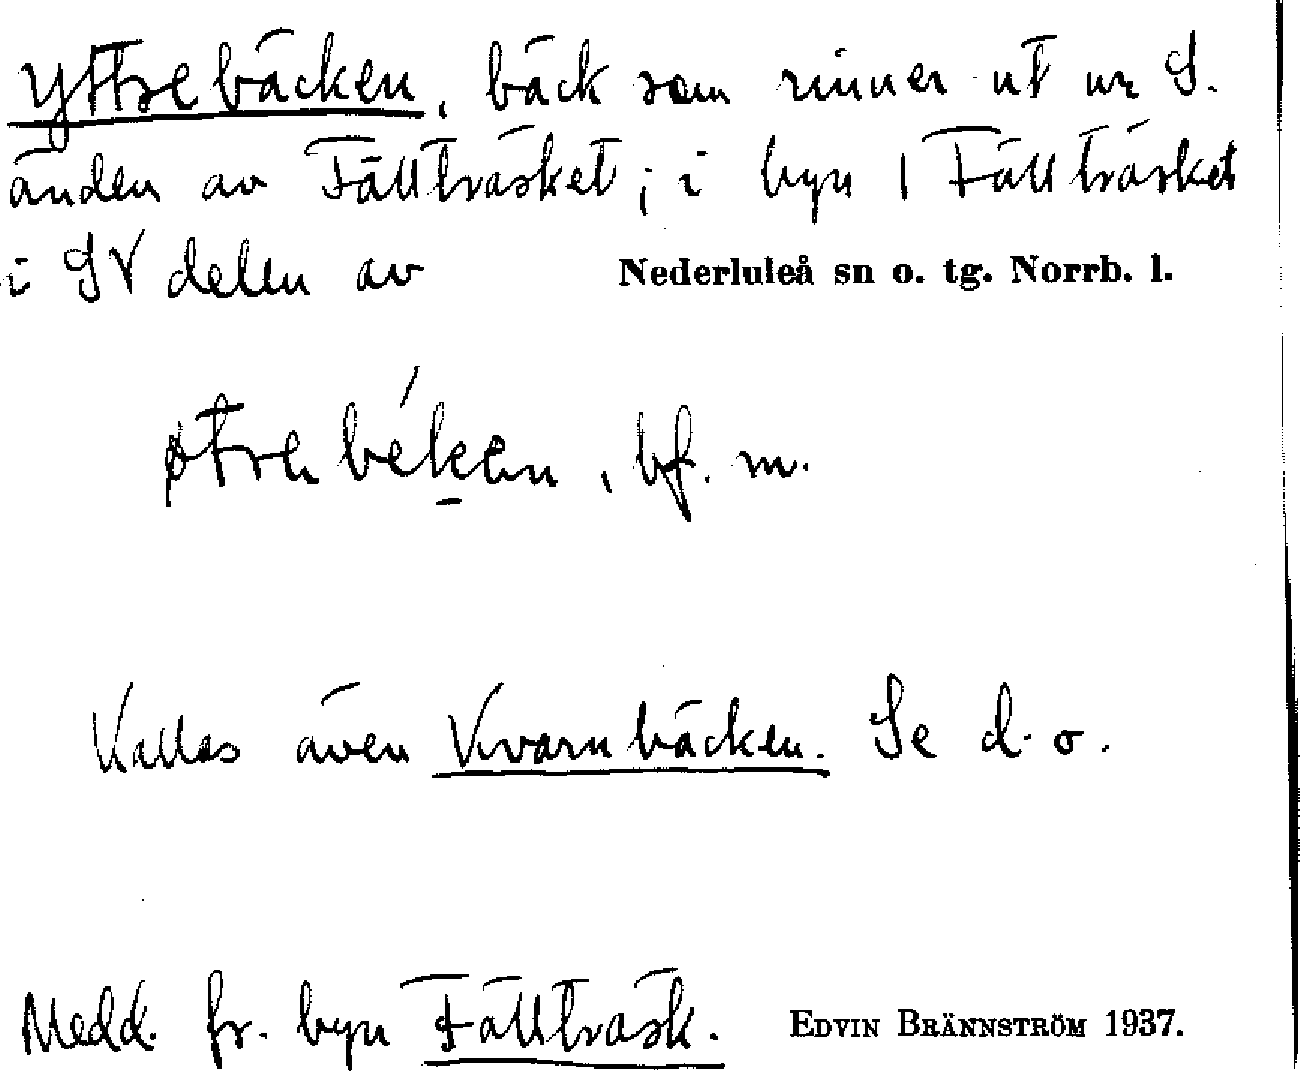 Yttrebäcken, bäck som rinner ut ur S.
änden av Fällträsket; i byn | Fällträsket
i SV delen av Nederluleå sn o. tg. Norrb. l.
bf. m.
Kallas även Kvarnbäcken. Se d. o.
Medd. fr. byn Fällträsk. EDVIN BRÄNNSTRÖM 1937.